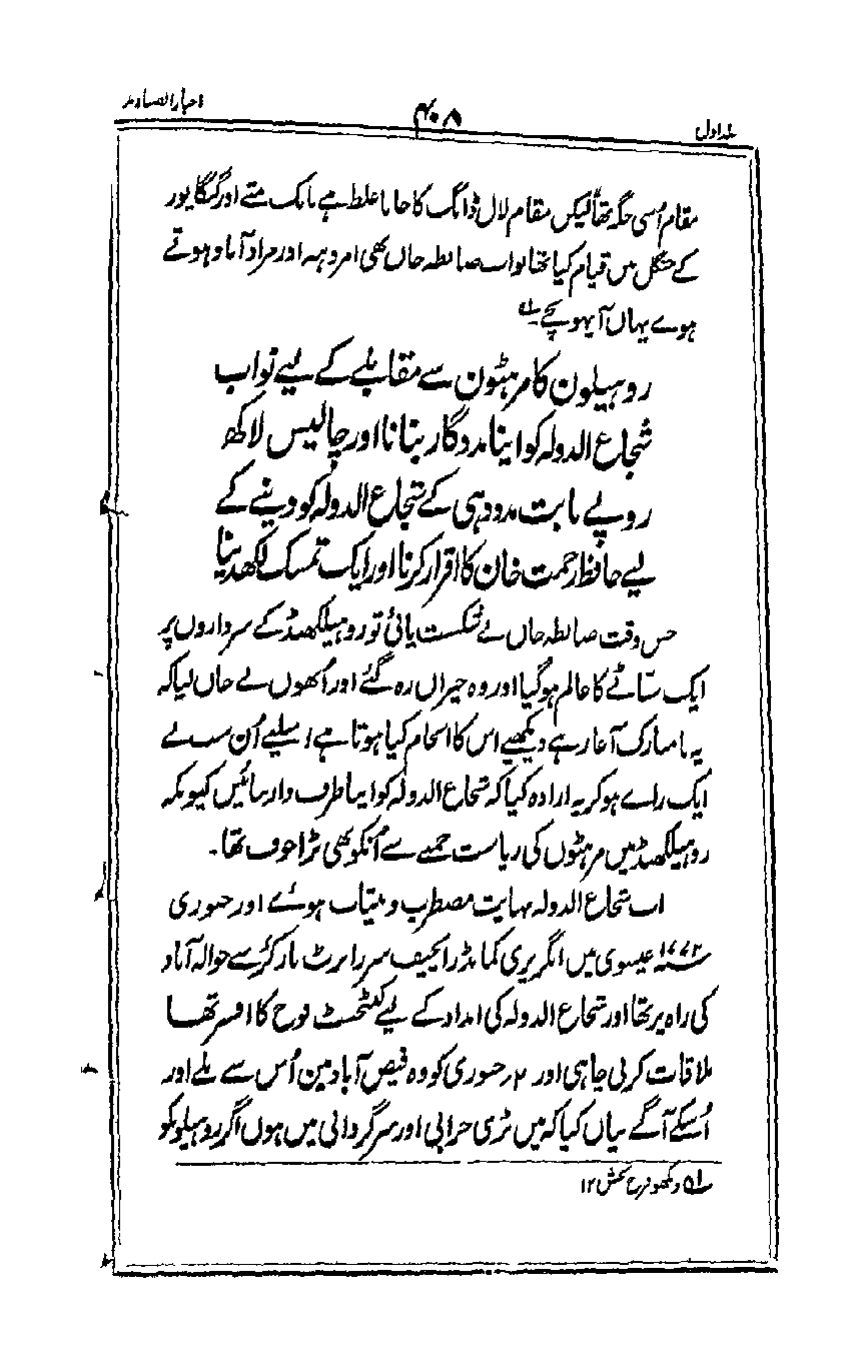 اخبار الصنادید
۴۰۸
جلد اول
مقام اُسی جگہ تھا لیکن مقام لال ڈانگ کا جانا غلط ہے بانک متے اور گنگاپور
کے جنگل میں قیام کیا تھا نواب ضابطہ خاں بھی امروہہ اور مرادآباد ہوتے
ہوے یہاں آ پہونچے۔ ۱؎
روہیلون کا مرہٹون سے مقابلے کے لیے نواب
شجاع الدولہ کو اپنا مددگار بنانا اور چالیس لاکھ
روپے بابت مدد دہی کے شجاع الدولہ کو دینے کے
لیے حافظ رحمت خان کا اقرار کرنا اور ایک تمسک لکھ دینا
جس وقت ضابطہ خاں نے شکست پائی تو روہیلکھنڈ کے سرداروں پر
ایک سنّاٹے کا عالم ہو گیا اور وہ حیراں رہ گئے اور اُنھوں نے جاں لیا کہ
یہ نامبارک آغاز ہے دیکھیے اس کا انجام کیا ہوتا ہے اسلیے اُن سب نے
ایک راے ہو کر یہ ارادہ کیا کہ شجاع الدولہ کو اپنا طرف دار بنائیں کیونکہ
روہیلکھنڈ میں مرہٹوں کی ریاست جمنے سے اُنکو بھی بڑا خوف تھا۔
اب شجاع الدولہ نہایت مضطرب و بیتاب ہوئے اور جنوری
۱۷۷۲ء عیسوی میں انگریزی کمانڈر انچیف سر رابرٹ بارکر سے جو الہ آباد
کی راہ پر تھا اور شجاع الدولہ کی امداد کے لیے کنٹنجنٹ فوج کا افسر تھا
ملاقات کرنی چاہی اور ۲۰ جنوری کو وہ فیض آباد مین اُس سے ملے اور
اُسکے آگے بیاں کیا کہ میں بڑی خرابی اور سرگردانی میں ہوں اگر روہیلو نکو
۱؎ دیکھو فرح بخش ۱۲